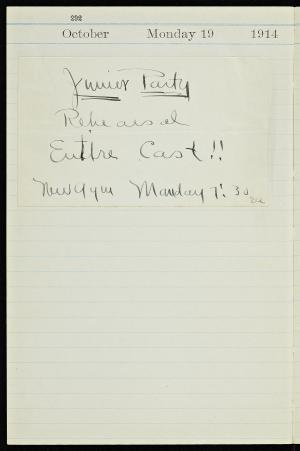 292
October Monday 19 1914
Junior Party
Rehearsal
Entire Cast!!
New Gym Monday 7:30